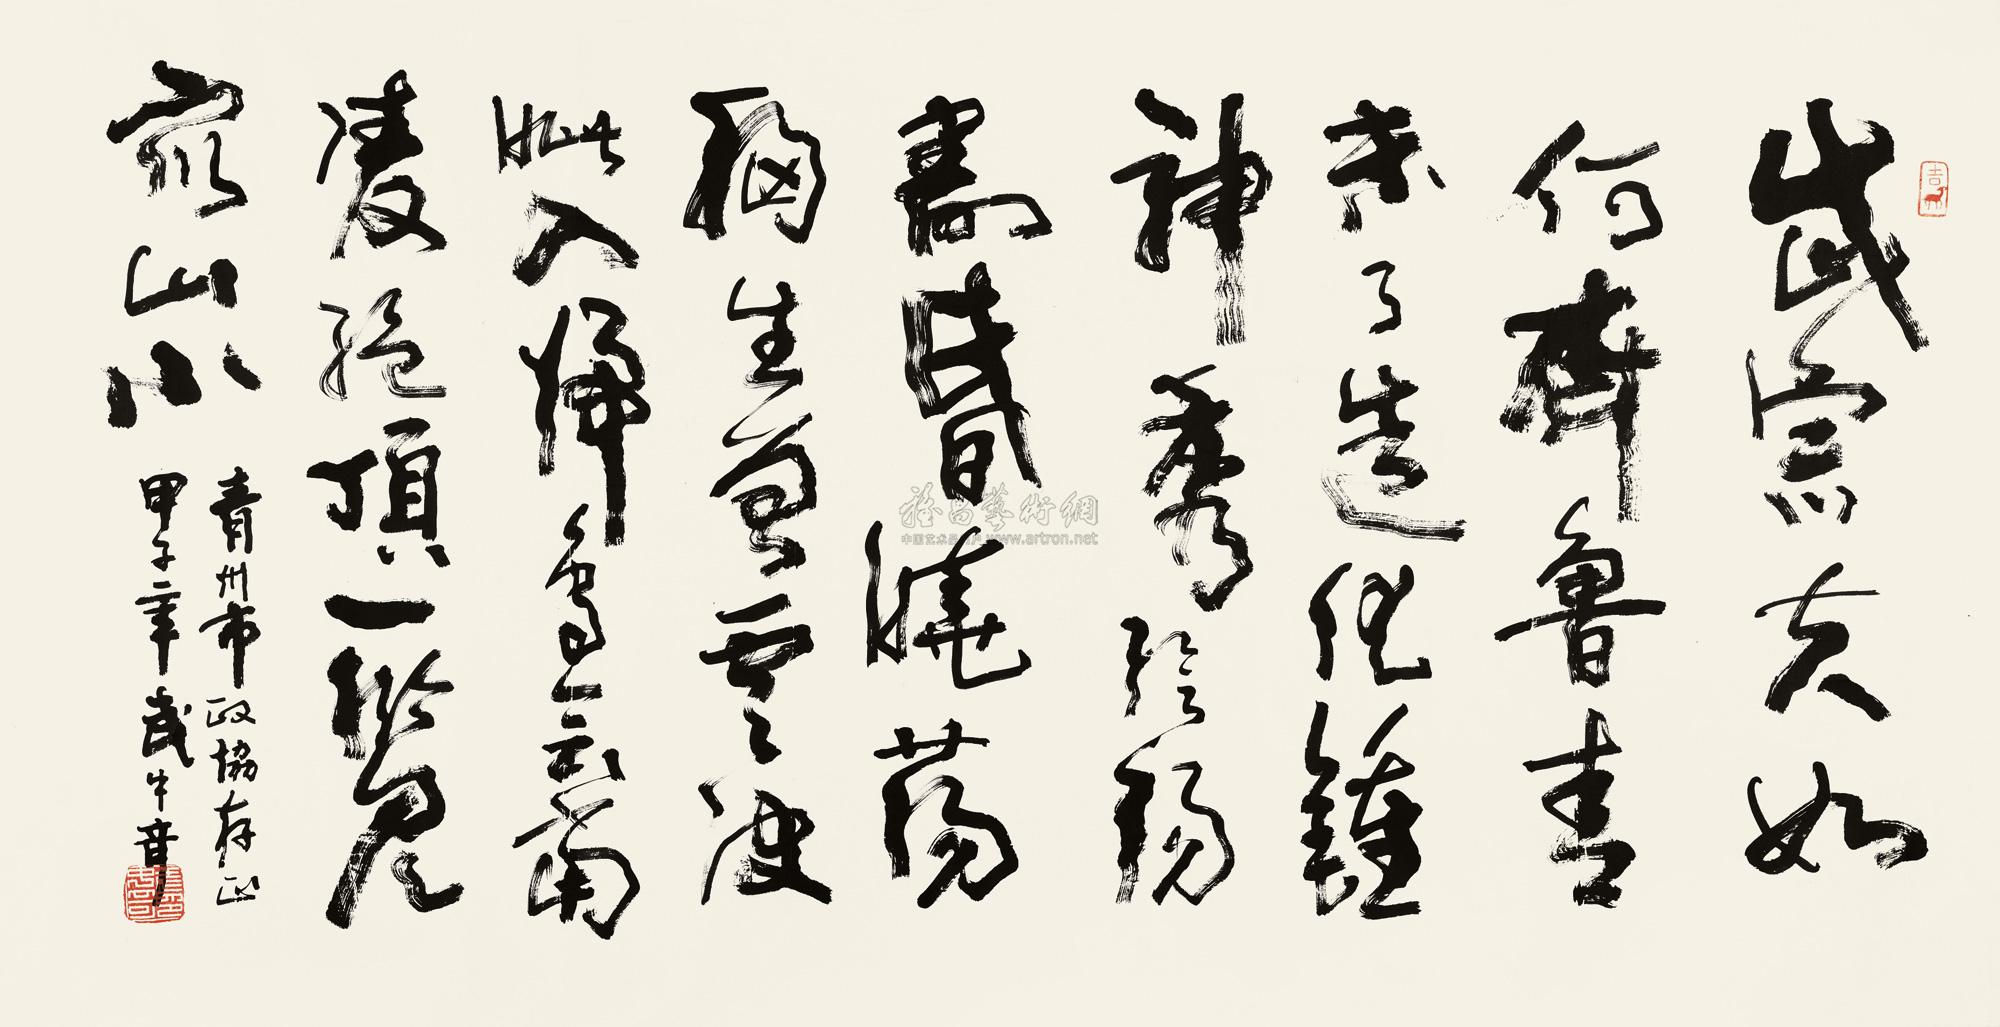 岱宗夫如
何齊魯青
未了造化鍾
神秀陰陽
割昏曉蕩
胸生曾雲決
眦入歸鳥會當
凌絕頂一覽
眾山小
青州市政協存正
甲子年
吉
雅昌藝術網
中国艺术品门户 www.artron.net